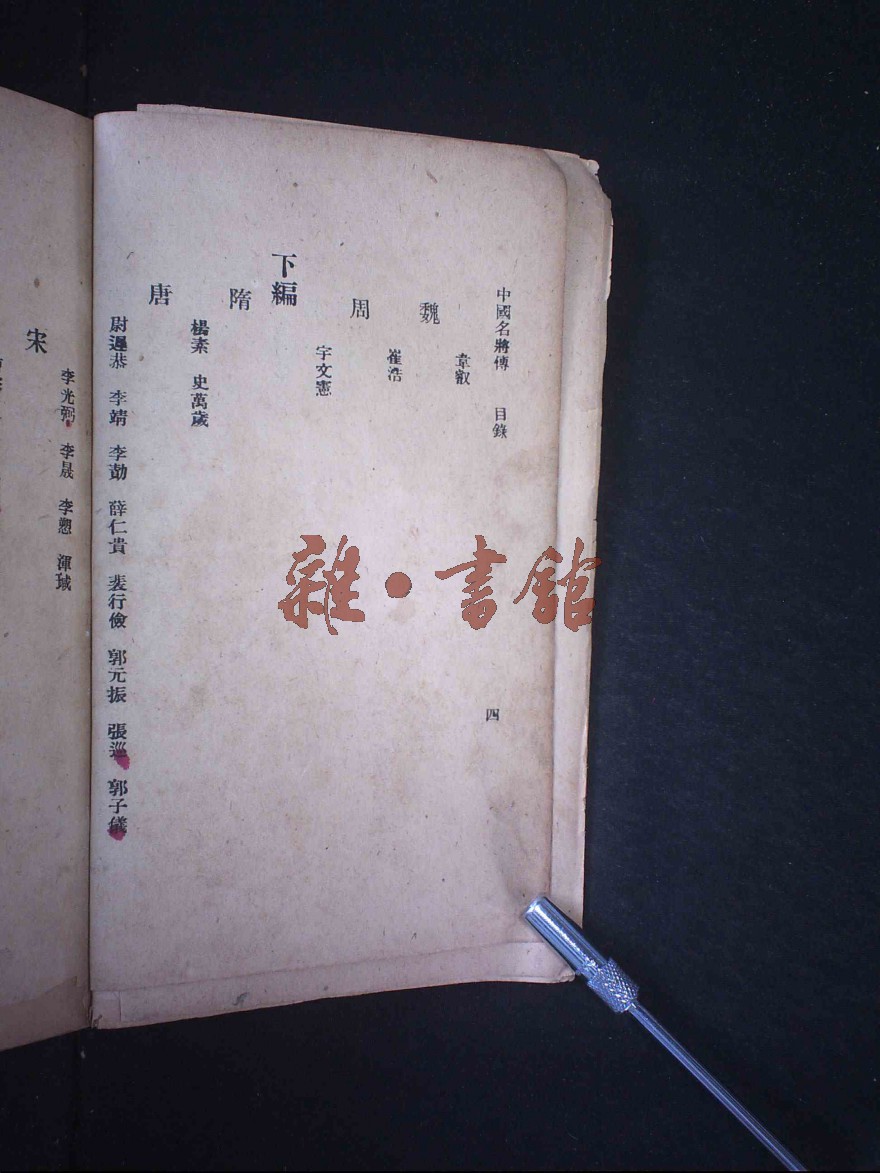 中國名將傳 目錄
四
韋叡
魏
崔浩
周
宇文憲
下編
隋
楊素 史萬歲
唐
尉遲恭 李靖 李勣 薛仁貴 裴行儉 郭元振 張巡 郭子儀
李光弼 李晟 李愬 渾瑊
宋
雜·書館